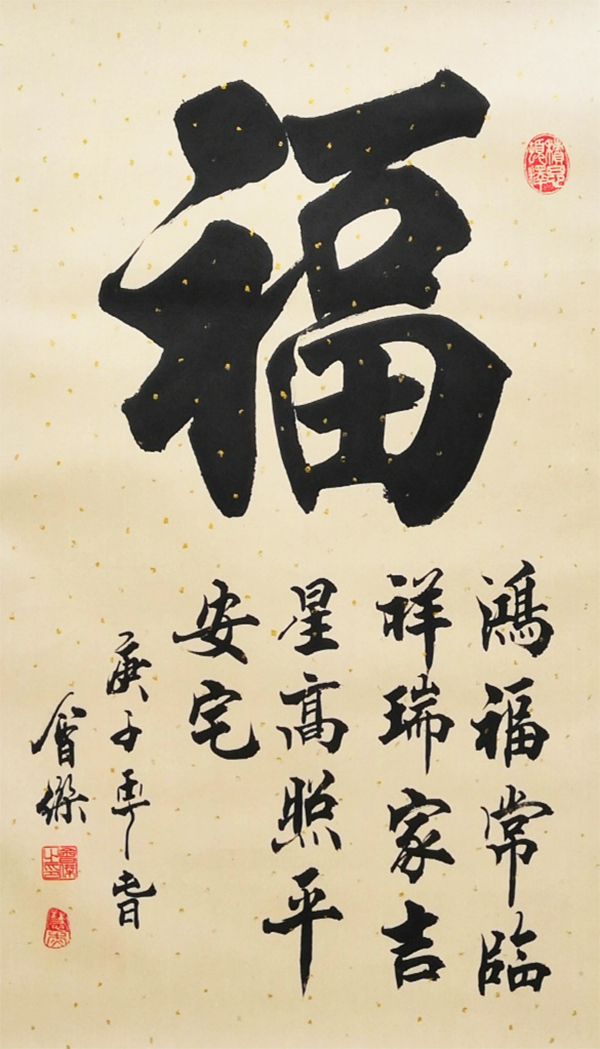 福
鸿福常臨
祥瑞家吉
星高照平
安宅
庚子年春
會傑